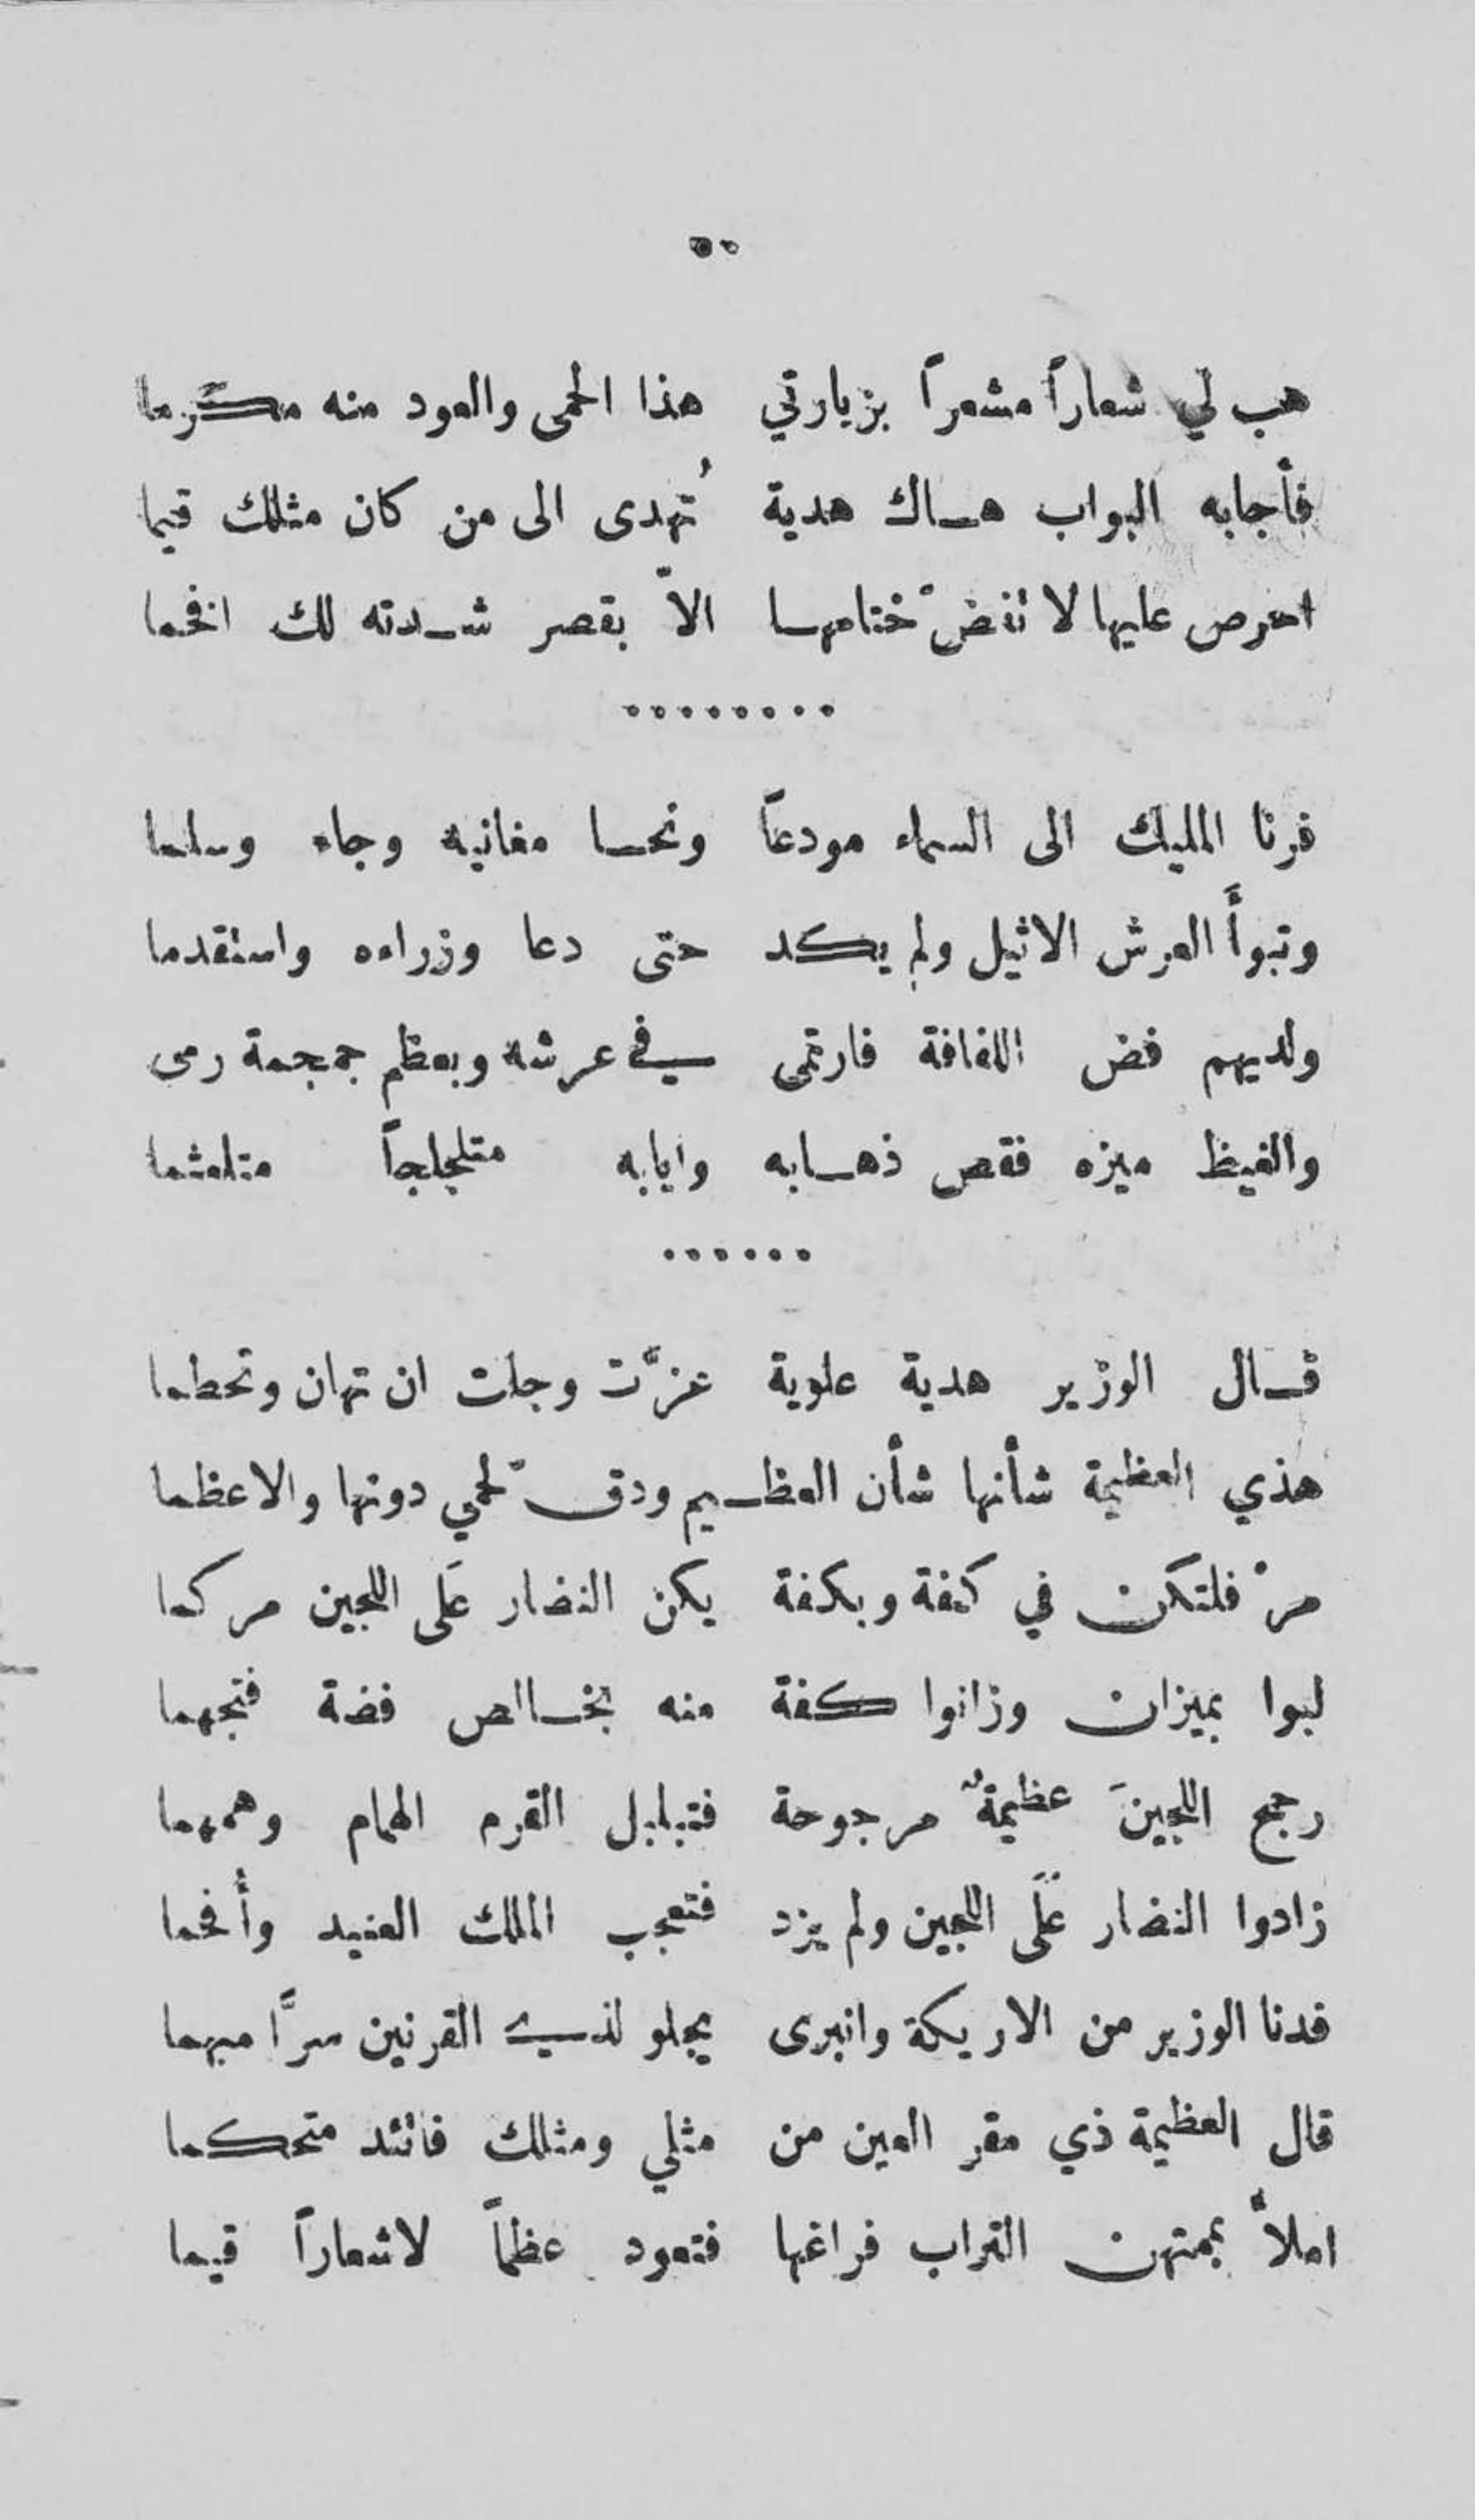 ٥٥
هب لي شعاراً مشعراً بزيارتي هذا الحمى والعود منه مكرَّما
فأجابه البواب هاك هدية تُهدى الى من كان مثلك قيما
احرص عليها لا تفضَّ ختامها الاّ بقصر شدته لك افخما
........
فرنا المليك الى السماء مودعاً ونحا مغانيه وجاء وسلما
وتبوأَ العرش الاثيل ولم يكد حتى دعا وزراءه واستقدما
ولديهم فض اللفافة فارتمى في عرشه وبعظم جمجمة رمى
والغيظ ميزه فقص ذهابه وايابه متلجلجاً متلعثما
......
قال الوزير هدية علوية عزَّت وجلت ان تهان وتحطما
هذي العظيمة شأنها شأن العظيم ودقّ لحمي دونها والاعظما
مرْ فلتكن في كفة وبكفة يكن النضار عَلَى اللجين مركما
لبوا بميزان وزانوا كفة منه بخالص فضة فتجهما
رجح اللجينَ عظيمةٌ مرجوحة فتبلبل القرم الهمام وهمهما
زادوا النضار عَلَى اللجين ولم يزد فتعجب الملك العنيد وأُفحما
فدنا الوزير من الاريكة وانبرى يجلو لذي القرنين سرَّا مبهما
قال العظيمة ذي مقر العين من مثلي ومثلك فاتئد متحكما
املأْ بممتهن التراب فراغها فتعود عظماً لاشعاراً قيما